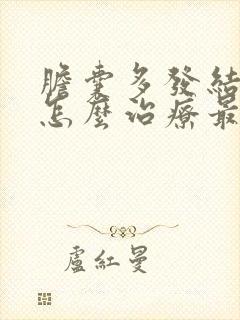 膽囊多發結
怎麼治療最
盧紅曼